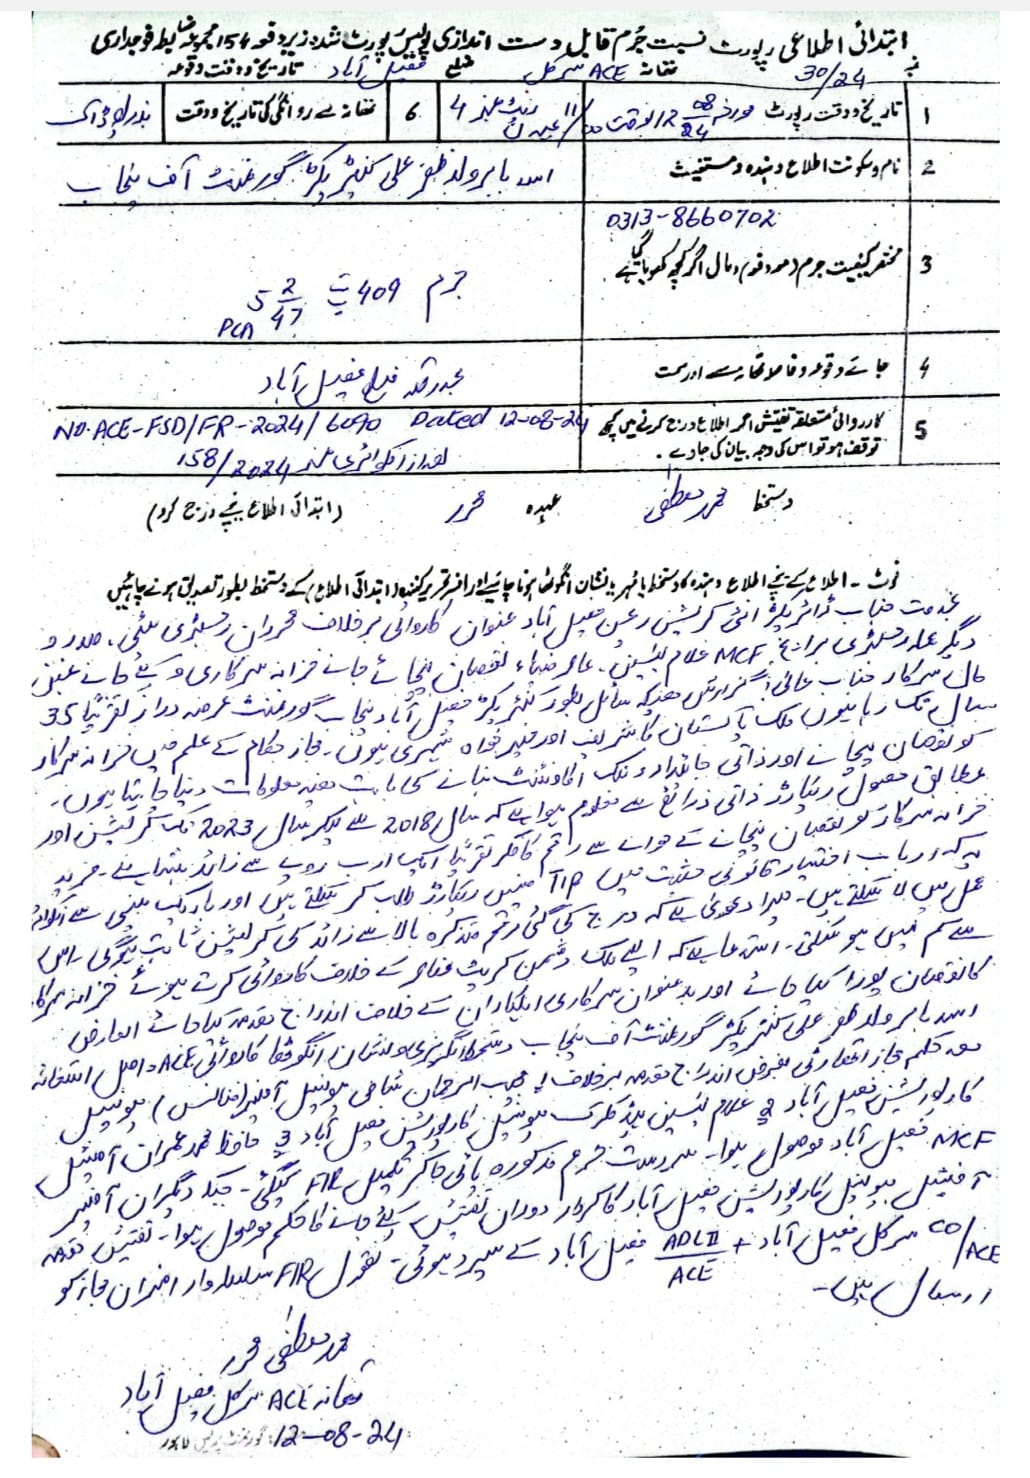 ابتدائی اطلاعی رپورٹ نسبت جرم قابل دست اندازی پولیس رپورٹ شدہ زیر دفعہ 154 مجموعہ ضابطہ فوجداری
نمبر 30/24 تھانہ ACE سرکل ضلع فیصل آباد تاریخ و وقت وقوعہ
1 تاریخ و وقت رپورٹ مورخہ 12/08/24 بوقت 11/00 رپٹ نمبر 4
6 تھانہ سے روانگی کی تاریخ و وقت بذریعہ ڈاک
2 نام و سکونت اطلاع دہندہ و مستغیث اسد بابر ولد ظفر علی کنٹریکٹر گورنمنٹ آف پنجاب
0313-8660702
3 مختصر کیفیت جرم (معہ دفعہ) و مال اگر کچھ کھویا گیا ہے
جرم 409 ت پ 5 2/47 PCA
4 جائے وقوعہ و فاصلہ تھانہ سے اور سمت فیصل آباد
5 کارروائی متعلقہ تفتیش اگر اطلاع درج کرنے میں کچھ توقف ہو تو اس کی وجہ بیان کی جاوے۔
NO. ACE-FSD/FR-2024/6090 Dated 12-08-24
بعد از انکوائری نمبر 158/2024
دستخط محمد مصطفی عہدہ محرر (ابتدائی اطلاع نیچے درج کرو)
نوٹ - اطلاع کے نیچے اطلاع دہندہ کا دستخط یا مہر یا نشان انگوٹھا ہونا چاہئیے اور افسر تحریر کنندہ (ابتدائی اطلاع) کے دستخط بطور تصدیق ہونے چاہئیں
بخدمت جناب ڈائریکٹر انٹی کرپشن ریجن فیصل آباد عنوان کاروائی برخلاف محرران رجسٹری
دیگر عملہ رجسٹری برانچ MCF غلام یٰسین، عامر ضیاء نقصان پہنچائے جانے خزانہ سرکاری و کئے جانے غبن
مال سرکار جناب عالی! گزارش ہے کہ سائل بطور کنٹریکٹر فیصل آباد پنجاب گورنمنٹ عرصہ دراز تقریباً 35
سال تک رہا ہوں ملک پاکستان کا شریف اور خیر خواہ شہری ہوں۔ مجاز حکام کے علم میں خزانہ سرکار
کو نقصان پہنچانے اور ذاتی جائیداد و بنک اکاؤنٹ بنانے کی بابت معلومات دینا چاہتا ہوں۔
مطابق حصول ریکارڈ ذاتی ذرائع سے معلوم ہوا ہے کہ سال 2018 سے لیکر سال 2023 تک کرپشن اور
خزانہ سرکار کو نقصان پہنچانے کے حوالے سے رقم کا تقریباً ایک ارب روپے سے زائد بنتا ہے۔ مزید
یہ کہ ارباب اختیار قانونی حیثیت میں ریکارڈ طلب کر سکتے ہیں اور باریک بینی سے انکوائری
عمل میں لا سکتے ہیں۔ میرا دعویٰ ہے کہ درج کی گئی رقم متذکرہ بالا سے زائد کی کرپشن ثابت ہوگی۔ اس
سے کم نہیں ہو سکتی۔ استدعا ہے کہ ایسے ملک دشمن کرپٹ کے خلاف کاروائی کرتے ہوئے خزانہ سرکار
کا نقصان پورا کیا جائے اور بدعنوان سرکاری اہلکاران کے خلاف اندراج مقدمہ کیا جائے العارض
اسد بابر ولد ظفر علی کنٹریکٹر گورنمنٹ آف پنجاب دستخط انگریزی و نشان انگوٹھا کاروائی ACE اصل استغاثہ
معہ حکم مجاز اتھارٹی بغرض اندراج مقدمہ برخلاف 1 الرحمان شامی میونسپل آفیسر (فنانس) میونسپل
کارپوریشن فیصل آباد 2 غلام یٰسین ہیڈ کلرک میونسپل کارپوریشن فیصل آباد 3 حافظ محمد عمران آفیشل
MCF فیصل آباد موصول ہوا۔ سردست جرم مذکورہ پائی جا کر تکمیل FIR کی گئی۔ جبکہ دیگران آفیسر
آفیشل میونسپل کارپوریشن فیصل آباد کا کردار دوران تفتیش کئے جانے کا حکم موصول ہوا۔ تفتیش مقدمہ
CO/ACE سرکل فیصل آباد + ADLII/ACE فیصل آباد کے سپرد ہوئی۔ نقول FIR سلسلہ وار افسران مجاز کو
ارسال ہیں۔
محمد مصطفی محرر
تھانہ ACE سرکل فیصل آباد
12-08-24
گورنمنٹ پریس لاہور